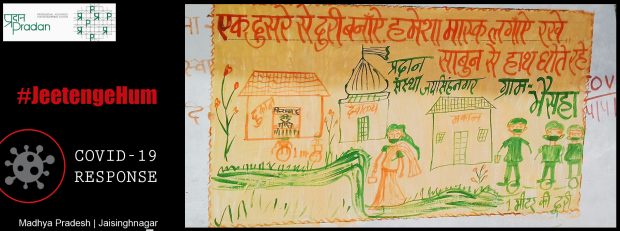 प्रदान
Pradan
#JeetengeHum
COVID-19
RESPONSE
Madhya Pradesh | Jaisinghnagar
एक दुसरे से दुरी बनाऐ हमेशा मास्क लगाऐ रखे
साबुन से हाथ धोते रहे
प्रदान
संस्था जयसिंहनगर
ग्राम-
भैसहा
दुकान
देवालय
मकान
1 मीटर की दुरी